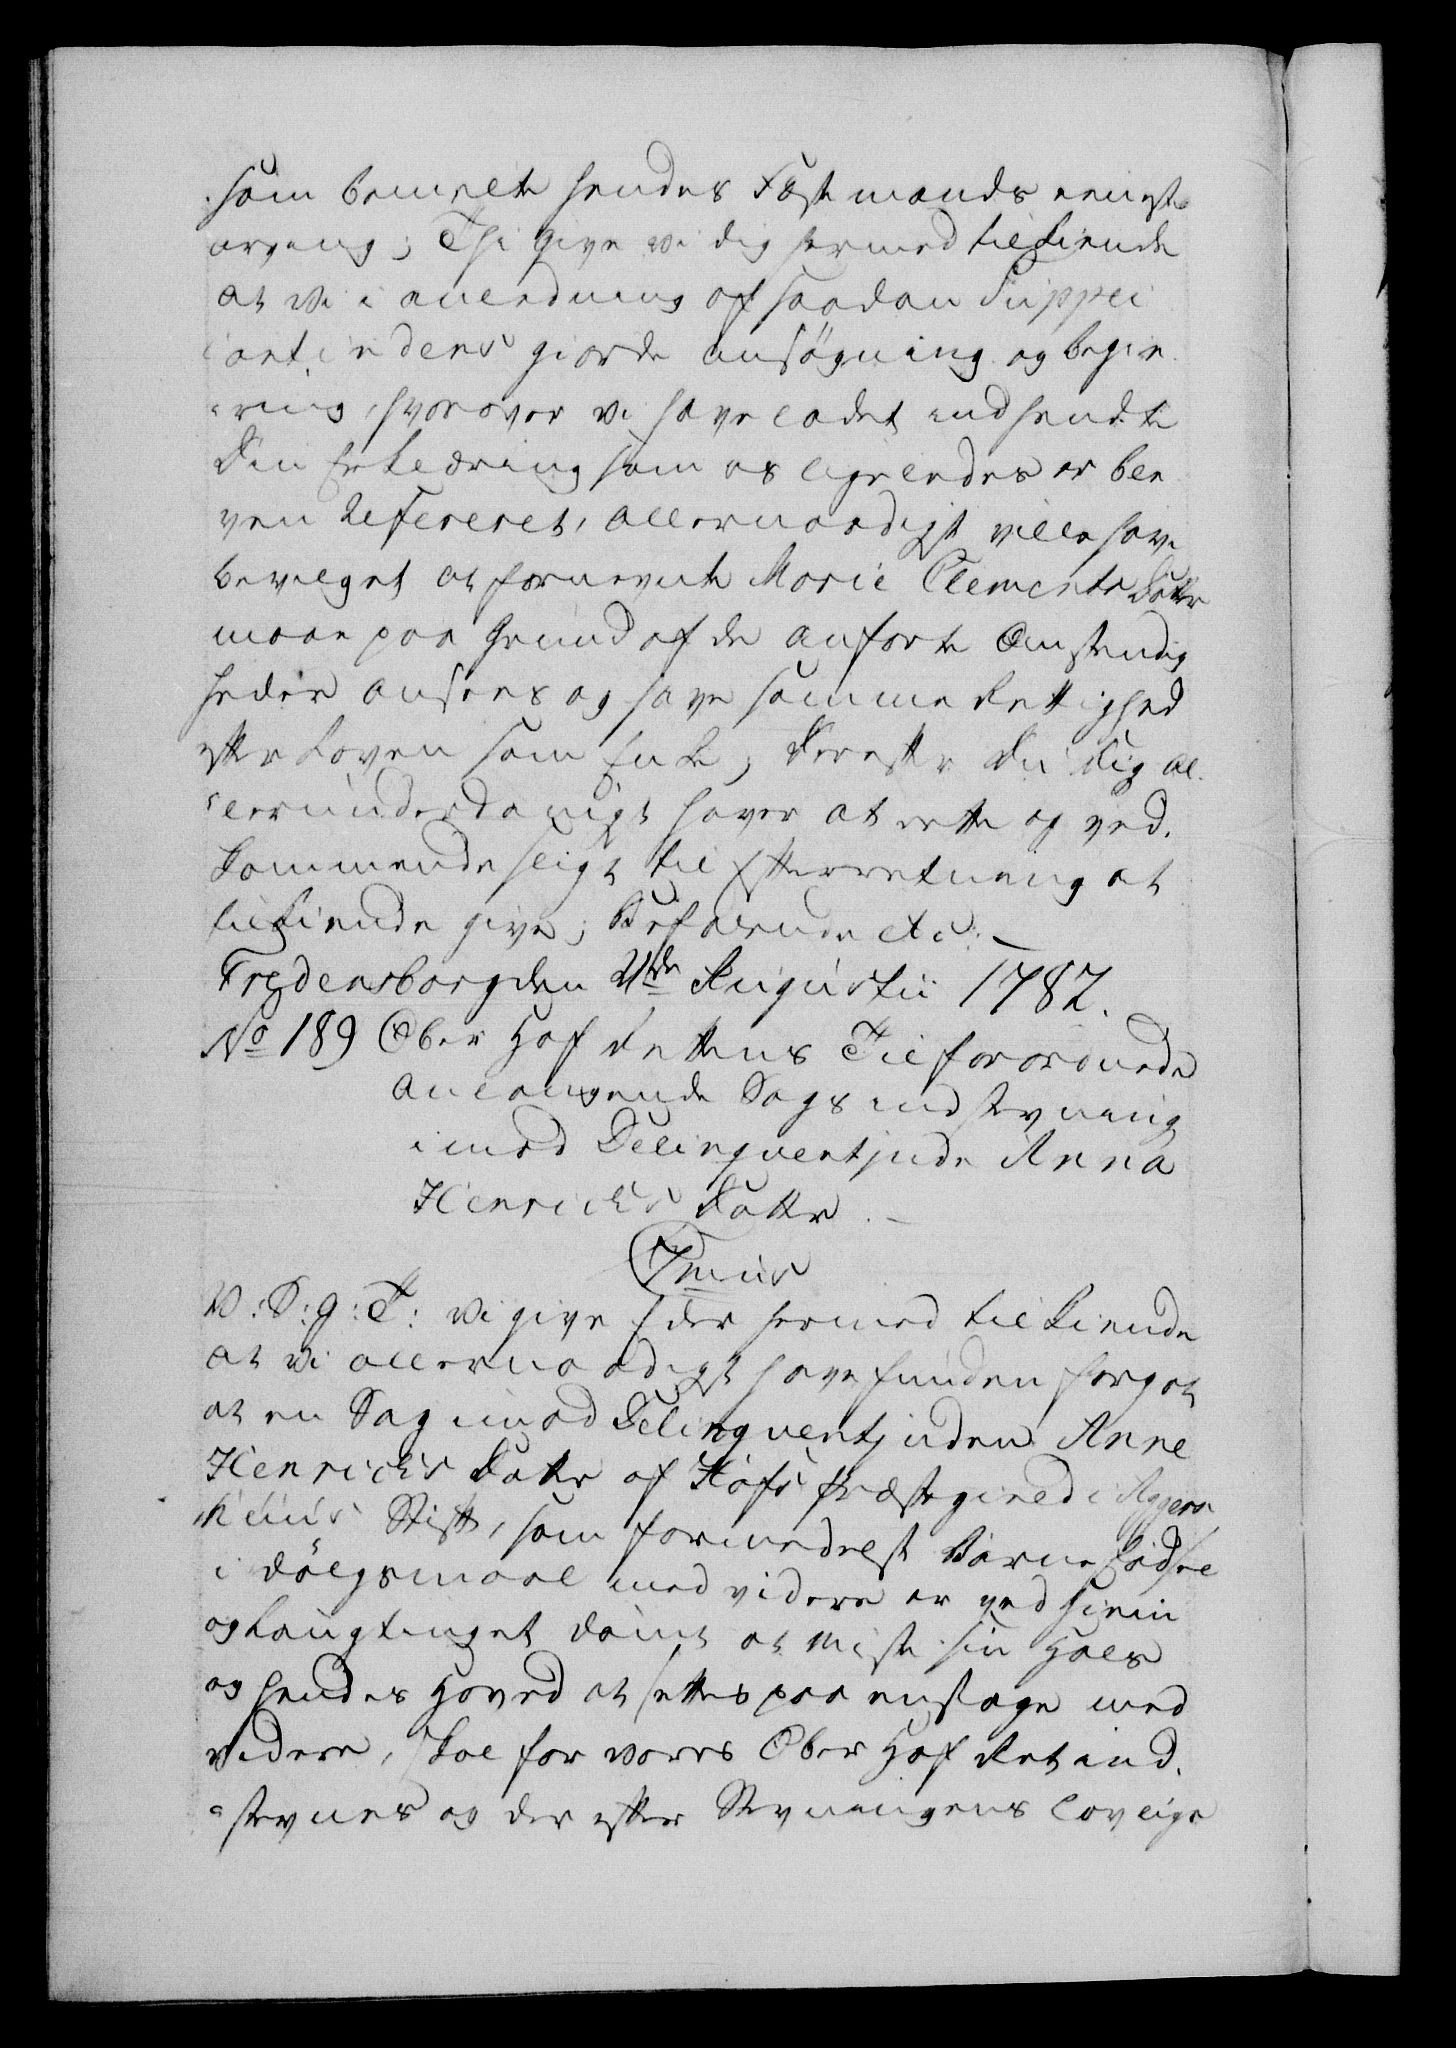 som bemelte hendes Fæstemands eeneste
arving; Thi give vi dig hermed tilkiende
at vi i anledning af saadan Suppli¬
cantindens giorde ansøgning og begie¬
ring, hvorover vi have ladet indhendte
din Erklæring som os ligeledes er ble¬
ven Refereret, allernaadigst ville have
bevilget at fornevnte Marie Clements Datter
maae paa Grund af de anforte Omstendig
heder ansees og have samme Rettighed
efter Loven som Enke, Derefter du dig al¬
lerunderdanigst haver at rette og ved¬
kommende sligt til Efterretning at
tilkiende give; Befalende etc:
Fredensborg den 21de Augustii 1782.
No 189 Ober Hof Rettens Tilforordnede
anlangende Sags indstevning
imod Delinqventinde Anna
Henrichs Datter.
7mus
V: S: g: T: Vi give Eder hermed tilkiende
at vi allernaadigst have funden forgot
at en Sag imod Delinqventinden Anne
Henrichs Datter af Hofs Præstegield i Aggers¬
huus Stift, som formedelst Barnefødsel
i dølgsmaal med videre er ved Hiem
og Laugtinget dømt at miste sin Hals
og hendes Hoved at settes paa en stage med
videre, skal for vores Ober Hof Ret ind¬
stevnes og der efter Stevningens lovlige